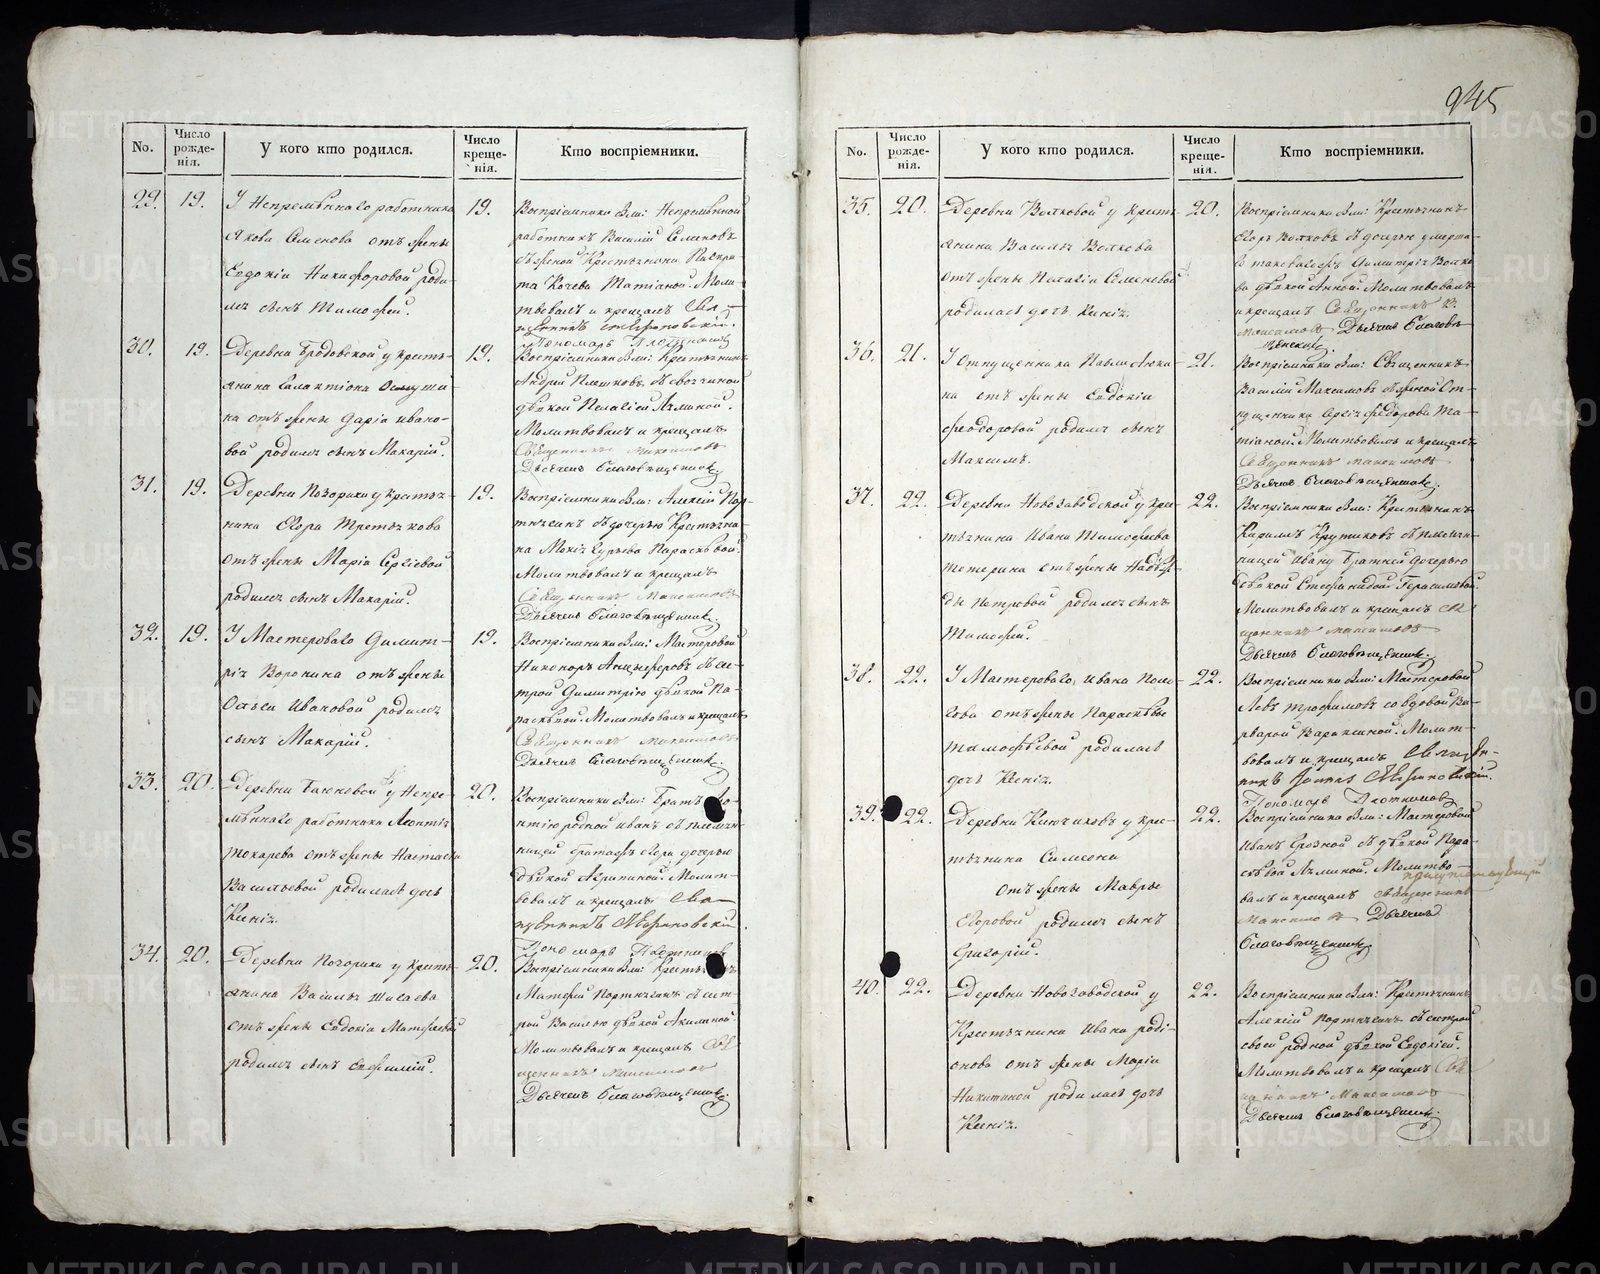 945
No.
Число рожде-нія.
У кого кто родился.
Число креще-нія.
Кто воспріемники.
29.
19.
У Непремѣннаго работника
Якова Семенова отъ жены
Евдокіи Никифоровой роди-
лся сынъ Тимофей.
19.
Воспріемники был: Непремѣнной
работникъ Василій Семеновъ
съ женой Крестьянина
та Кочева Татіаной. Моли-
твовалъ и крещалъ Свя-
щенникъ
Пономарь
30.
19.
Деревни Бродовской у кресть-
янина Галактіона
на отъ жены Даріи Ивано-
вой родился сынъ Макарій.
19.
Воспріемники был: Крестьянинъ
Андрей
дѣвкой Пелагіей
Молитвовалъ и крещалъ
Священникъ Максимовъ
Дьячекъ Благовѣщенск.
31.
19.
Деревни Позорихи у крестья-
нина Егора Третьякова
отъ жены Маріи Сергіевой
родился сынъ Макарій.
19.
Воспріемники был: Алексій Пор-
тнягинъ съ дочерью Крестьяни-
на Мокія Гурьева Параскѣвой.
Молитвовалъ и крещалъ
Священникъ Максимовъ
Дьячекъ Благовѣщенск.
32.
19.
У Мастероваго Димит-
рія Воронина отъ жены
Ивановой родился
сынъ Макарій.
19.
Воспріемники был: Мастеровой
Никаноръ Анциферовъ съ сес-
трой Димитрію дѣвкой Па-
раскѣвой. Молитвовалъ и крещалъ
Священникъ Максимовъ
Дьячекъ Благовѣщенск.
33.
20.
Деревни у Непре-
мѣннаго работника Леонтія
Токарева отъ жены Настасьи
Васильевой родилась дочь
Ксенія.
20.
Воспріемники был: Братъ
родной Иванъ съ племян-
ницей Егора дочерью
дѣвкой Агрипиной. Молит-
вовалъ и крещалъ Свя-
щенникъ
Пономарь
34.
20.
Деревни Позорихи у кресть-
янина Василья
отъ жены Евдокіи Матфеевой
родился сынъ Евфимій.
20.
Воспріемники был:
Матфей Портнягинъ съ сест-
рой Василью дѣвкой Акилиной.
Молитвовалъ и крещалъ Свя-
щенникъ Максимовъ
Дьячекъ Благовѣщенск.
No.
Число рожде-нія.
У кого кто родился.
Число креще-нія.
Кто воспріемники.
35.
20.
Деревни Волковой у кресть-
янина Василья Волкова
отъ жены Наталіи Семеновой
родилась дочь Ксенія.
20.
Воспріемники был: Крестьянинъ
Егоръ Волковъ съ дочерью умерша-
го Димитрія Волко-
ва дѣвкой Анной. Молитвовалъ
и крещалъ Священникъ В.
Максимовъ Дьячекъ Благовѣ-
щенскій.
36.
21.
У Отпущенника Павла
на отъ жены Евдокіи
Феодоровой родился сынъ
Максимъ.
21.
Воспріемники был: Священникъ
Василій Максимовъ съ женой От-
пущенника Сергія Федорова Та-
тіаной. Молитвовалъ и крещалъ
Священникъ Максимовъ
Дьячекъ Благовѣщенск.
37.
22.
Деревни Новозаводской у кре-
стьянина Ивана Тимофеева
Тетерина отъ жены Надѣж-
ды Петровой родился сынъ
Тимофей.
22.
Воспріемники был: Крестьянинъ
Крутиковъ съ племян-
ницей Ивану Братней дочерью
дѣвкой Стефанидой Герасимовой.
Молитвовалъ и крещалъ Свя-
щенникъ Максимовъ
Дьячекъ Благовѣщенск.
38.
22.
У Мастероваго Ивана
отъ жены Параскѣвы
Тимофѣевой родилась
дочь Ксенія.
22.
Воспріемники был: Мастеровой
Левъ Трофимовъ со вдовой Ва-
рварой Варакиной. Молит-
вовалъ и крещалъ Священ-
никъ
Пономарь
39.
22.
Деревни у кре-
стьянина Симеона
отъ жены Мавры
Егоровой родился сынъ
Григорій.
22.
Воспріемники был: Мастеровой
Иванъ Грозной съ дѣвкой Пара-
скѣвой Молитво-
валъ и крещалъ Священникъ
Максимовъ Дьячекъ
Благовѣщенск.
40.
22.
Деревни Новозаводской у
Крестьянина Ивана Роди-
онова отъ жены Маріи
Никитиной родилась дочь
Ксенія.
22.
Воспріемники был: Крестьянинъ
Алексій Портнягинъ съ сестрой
своей родной дѣвкой Евдокіей.
Молитвовалъ и крещалъ Свя-
щенникъ Максимовъ
Дьячекъ Благовѣщенск.
METRIKI.GASO-URAL.RU